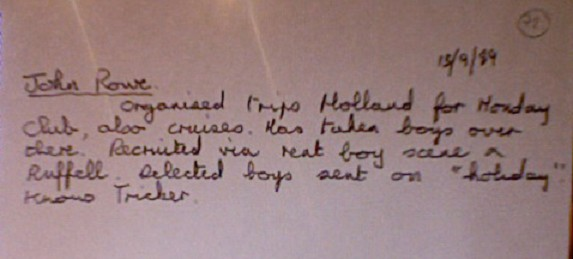 21
13/9/89
John Rowe.
Organised trips Holland for Monday
Club, also cruises. Has taken boys over
there. Recruited via rent boy scene &
Ruffell. Selected boys sent on "holiday".
Knows Tricker.